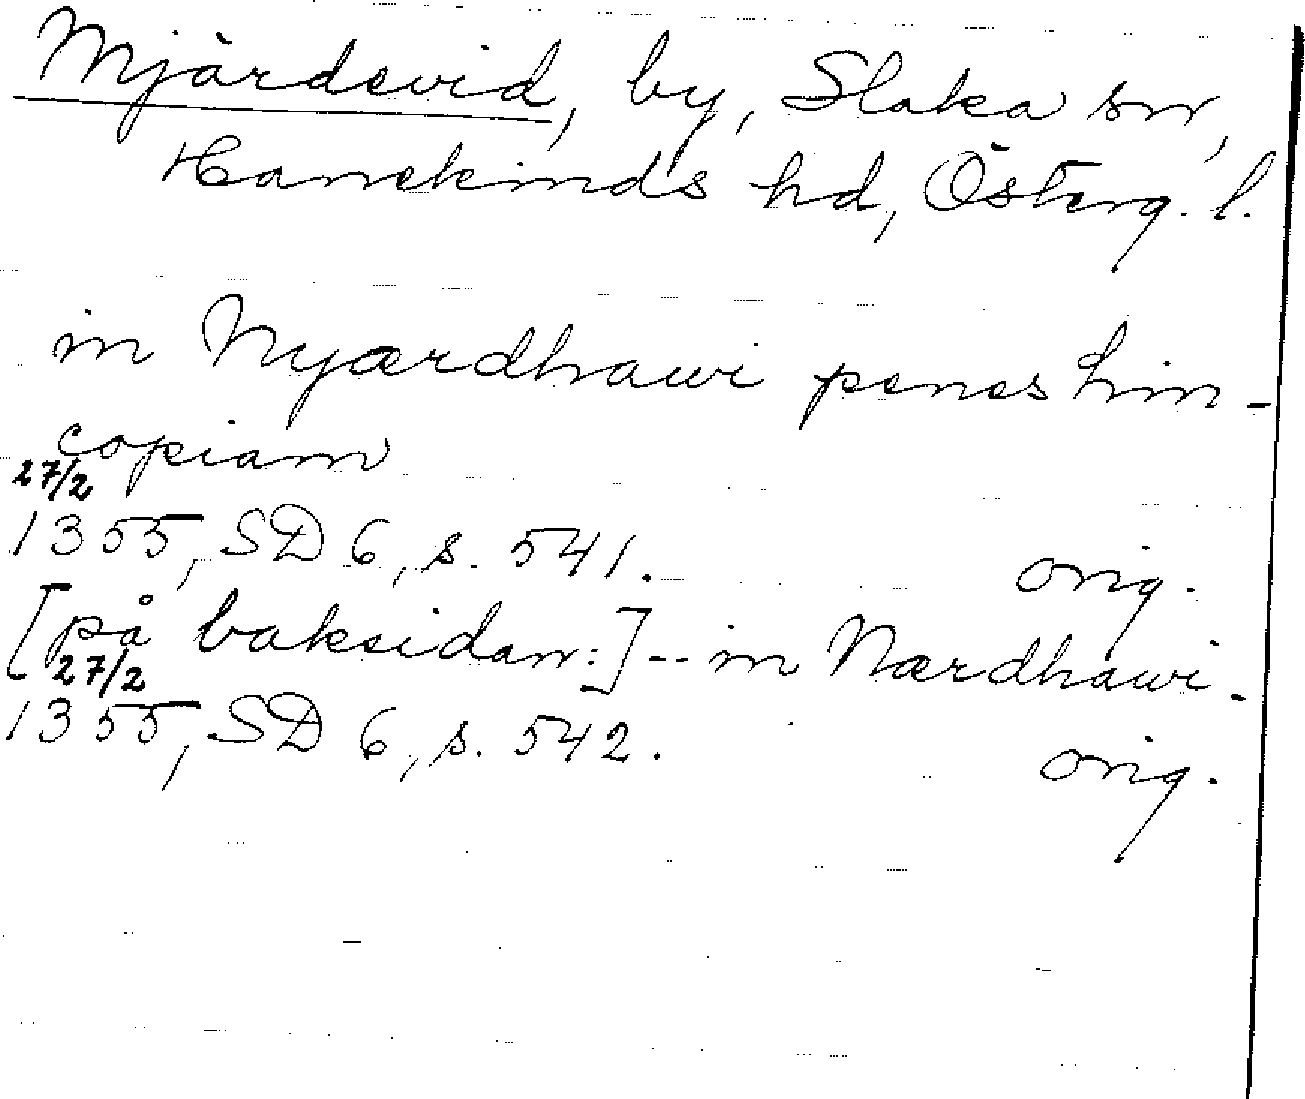 Mjärdevid, by, Slaka sn,
Hanekinds hd, Österg. l.
in Nyærdhawi penes lin-
copiam
27/2
1355, SD 6, s. 541. orig.
[på baksidan:] -- in Nærdhawi.
27/2
1355, SD 6, s. 542. orig.